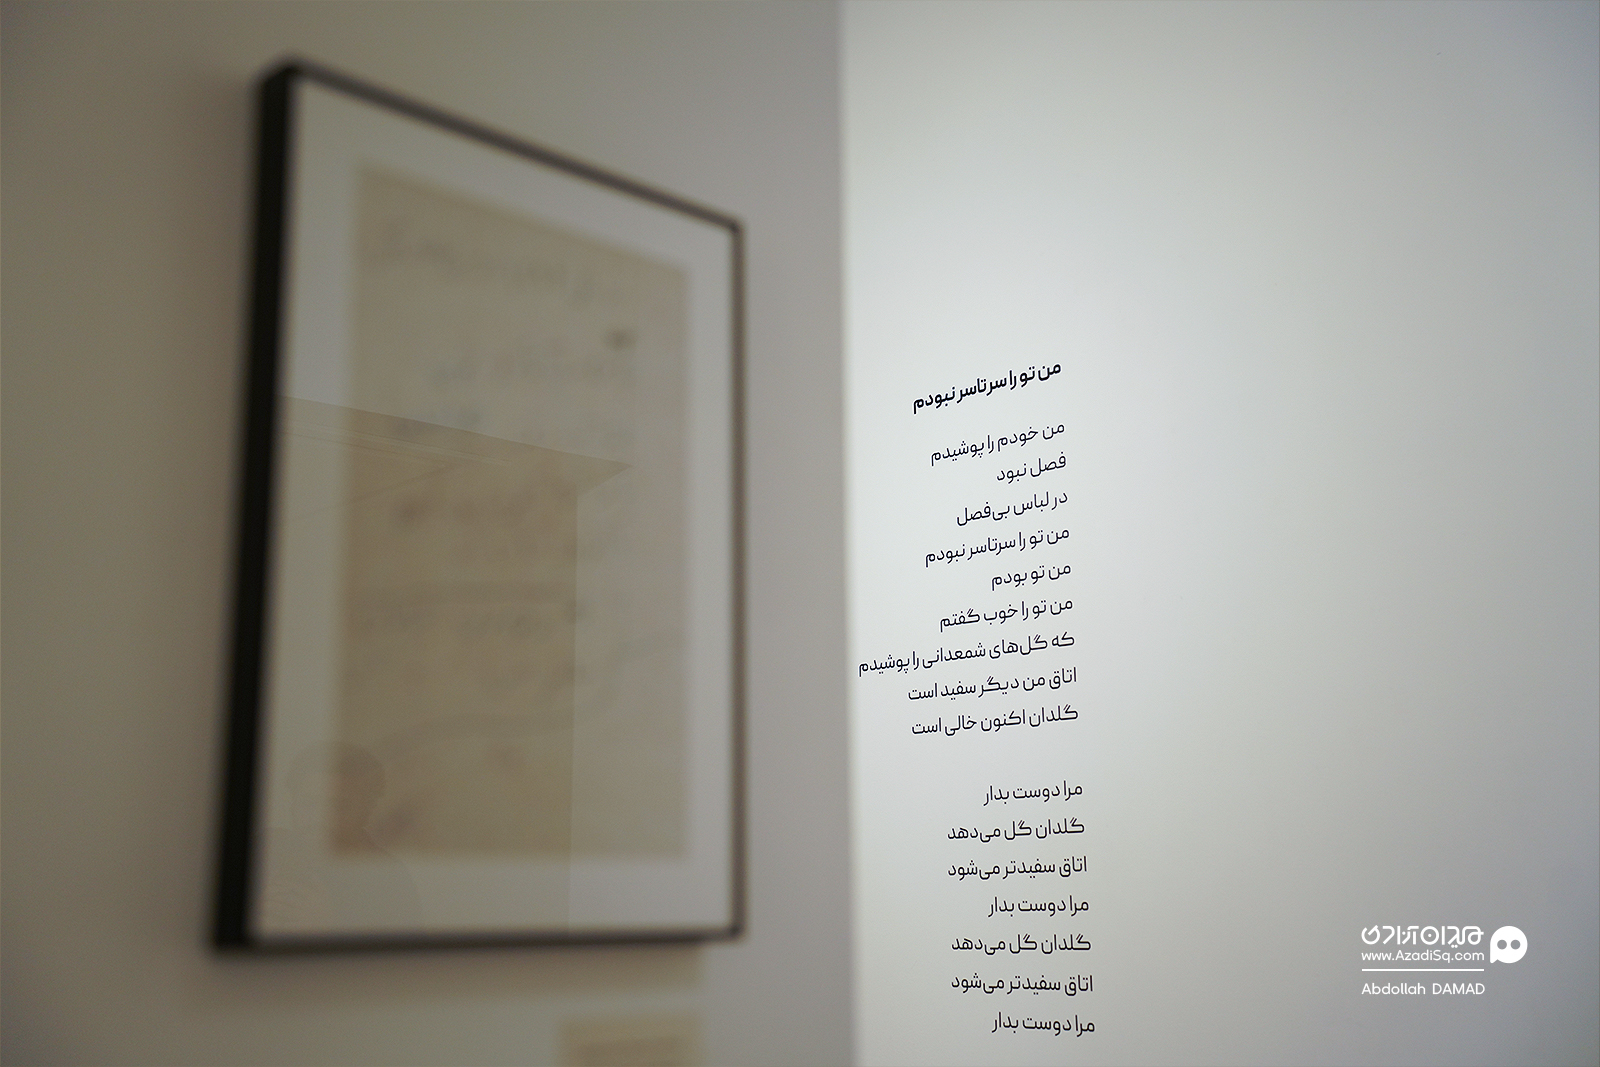 من تو را سرتاسر نبودم
من خودم را پوشیدم
فصل نبود
در لباس بی‌فصل
من تو را سرتاسر نبودم
من تو بودم
من تو را خوب گفتم
که گل‌های شمعدانی را پوشیدم
اتاق من دیگر سفید است
گلدان اکنون خالی است
مرا دوست بدار
گلدان گل می‌دهد
اتاق سفیدتر می‌شود
مرا دوست بدار
گلدان گل می‌دهد
اتاق سفیدتر می‌شود
مرا دوست بدار
میدان آزادی
www.AzadiSq.com
Abdollah DAMAD